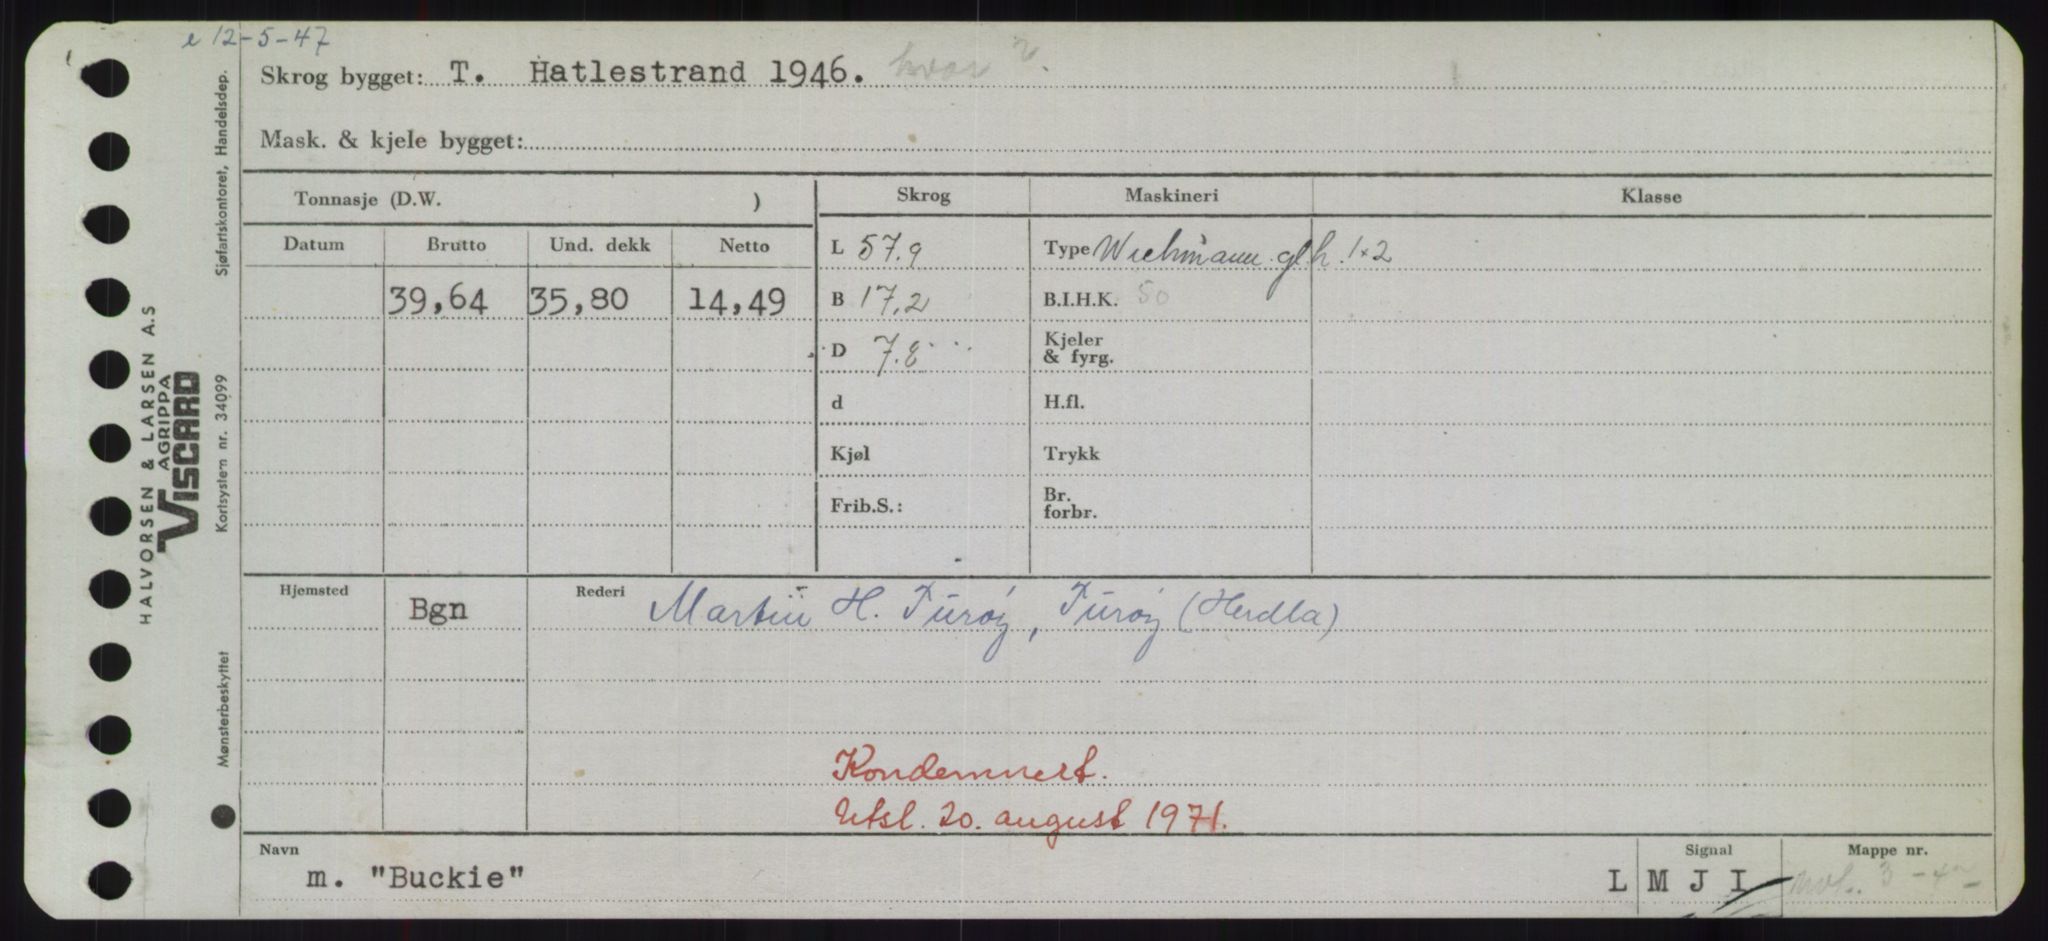 e 12-5-47
Skrog bygget: T. Hatlestrand 1946. hvor ?
Mask. & kjele bygget:
Tonnasje (D.W. ) Skrog Maskineri Klasse
Datum Brutto Und. dekk Netto
L 57.9 Type Wichmann glh. 1x2
39,64 35,80 14,49 B 17.2 B.I.H.K. 50
D 7.8 Kjeler & fyrg.
d H.fl.
Kjøl Trykk
Frib.S.: Br. forbr.
Hjemsted Bgn Rederi Martin H. Turøy, Turøy (Herdla)
Kondemnert.
Utsl. 20. august 1971.
Navn Signal Mappe nr.
m. "Buckie" L M J I
HALVORSEN & LARSEN A.S
AGRIPPA
VISCARD
Mønsterbeskyttet Kortsystem nr. 34099 Sjøfartskontoret, Handelsdep.